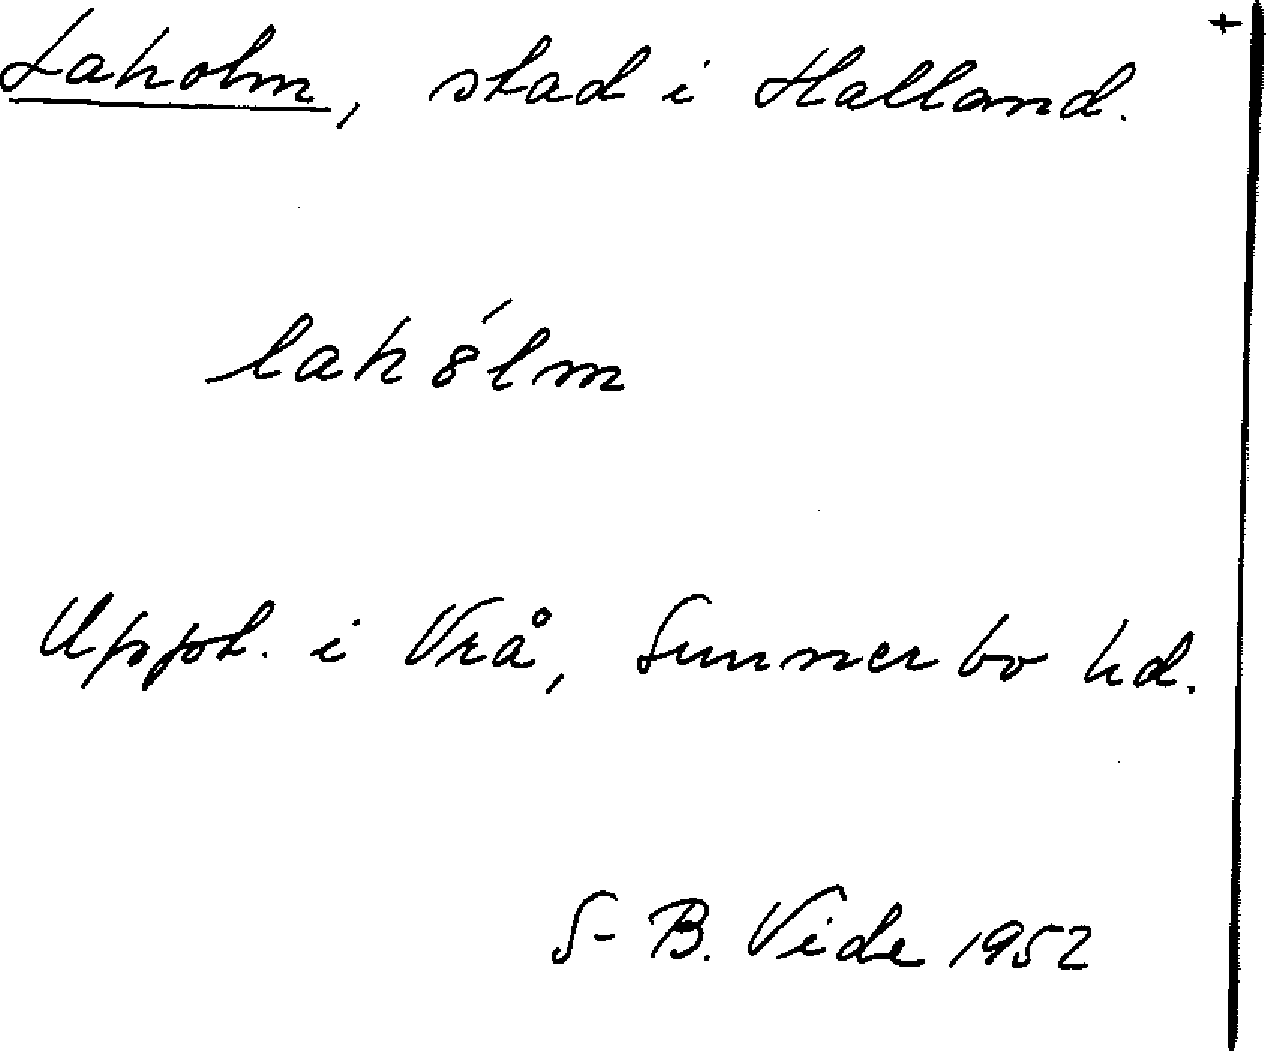 Laholm, stad i Halland. +
lahȣ́lm
Uppt. i Vrå, Sunnerbo hd.
S-B. Vide 1952